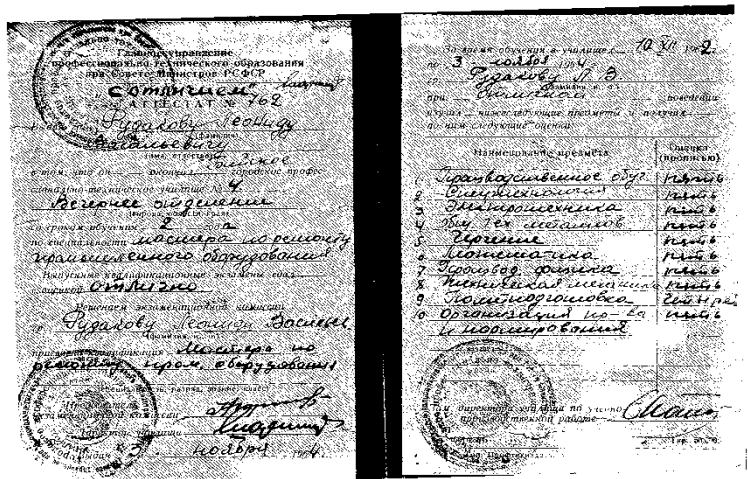 Главное управление
профессионально-технического образования
при Совете Министров РСФСР
с отличием
АТТЕСТАТ № 762
Рудакову Леониду
Васильевичу
(фамилия)
(имя, отчество)
в том, что он окончил Бийское городское профес-
сионально-техническое училище № 4
Вечернее отделение
со сроком обучения 2 года
по специальности мастера по ремонту
промышленного оборудования
Выпускные квалификационные экзамены сдал
с оценкой отлично
Решением экзаменационной комиссии
Рудакову Леониду Васильев
(фамилия
присвоена квалификация Мастера по
ремонту пром. оборудования
Председатель
экзаменационной комиссии
Директор училища
3 ноября 1964
За время обучения в училище с 10 XII 1962
по 3 ноября 1964
Рудакову Л. В.
при поведении
изучил нижеследующие предметы и получил
по ним следующие оценки
Наименование предмета Оценка (прописью)
1 Производственное обуч. пять
2 Спецтехнология пять
3 Электротехника пять
4 Общ. тех. металлов пять
5 Черчение пять
6 Математика пять
7 Производ. физика пять
8 Техническая механика пять
9 Политподготовка четыре
10 Организация пр-ва пять
и нормирования
Зам. директора училища по учебно-
производственной работе